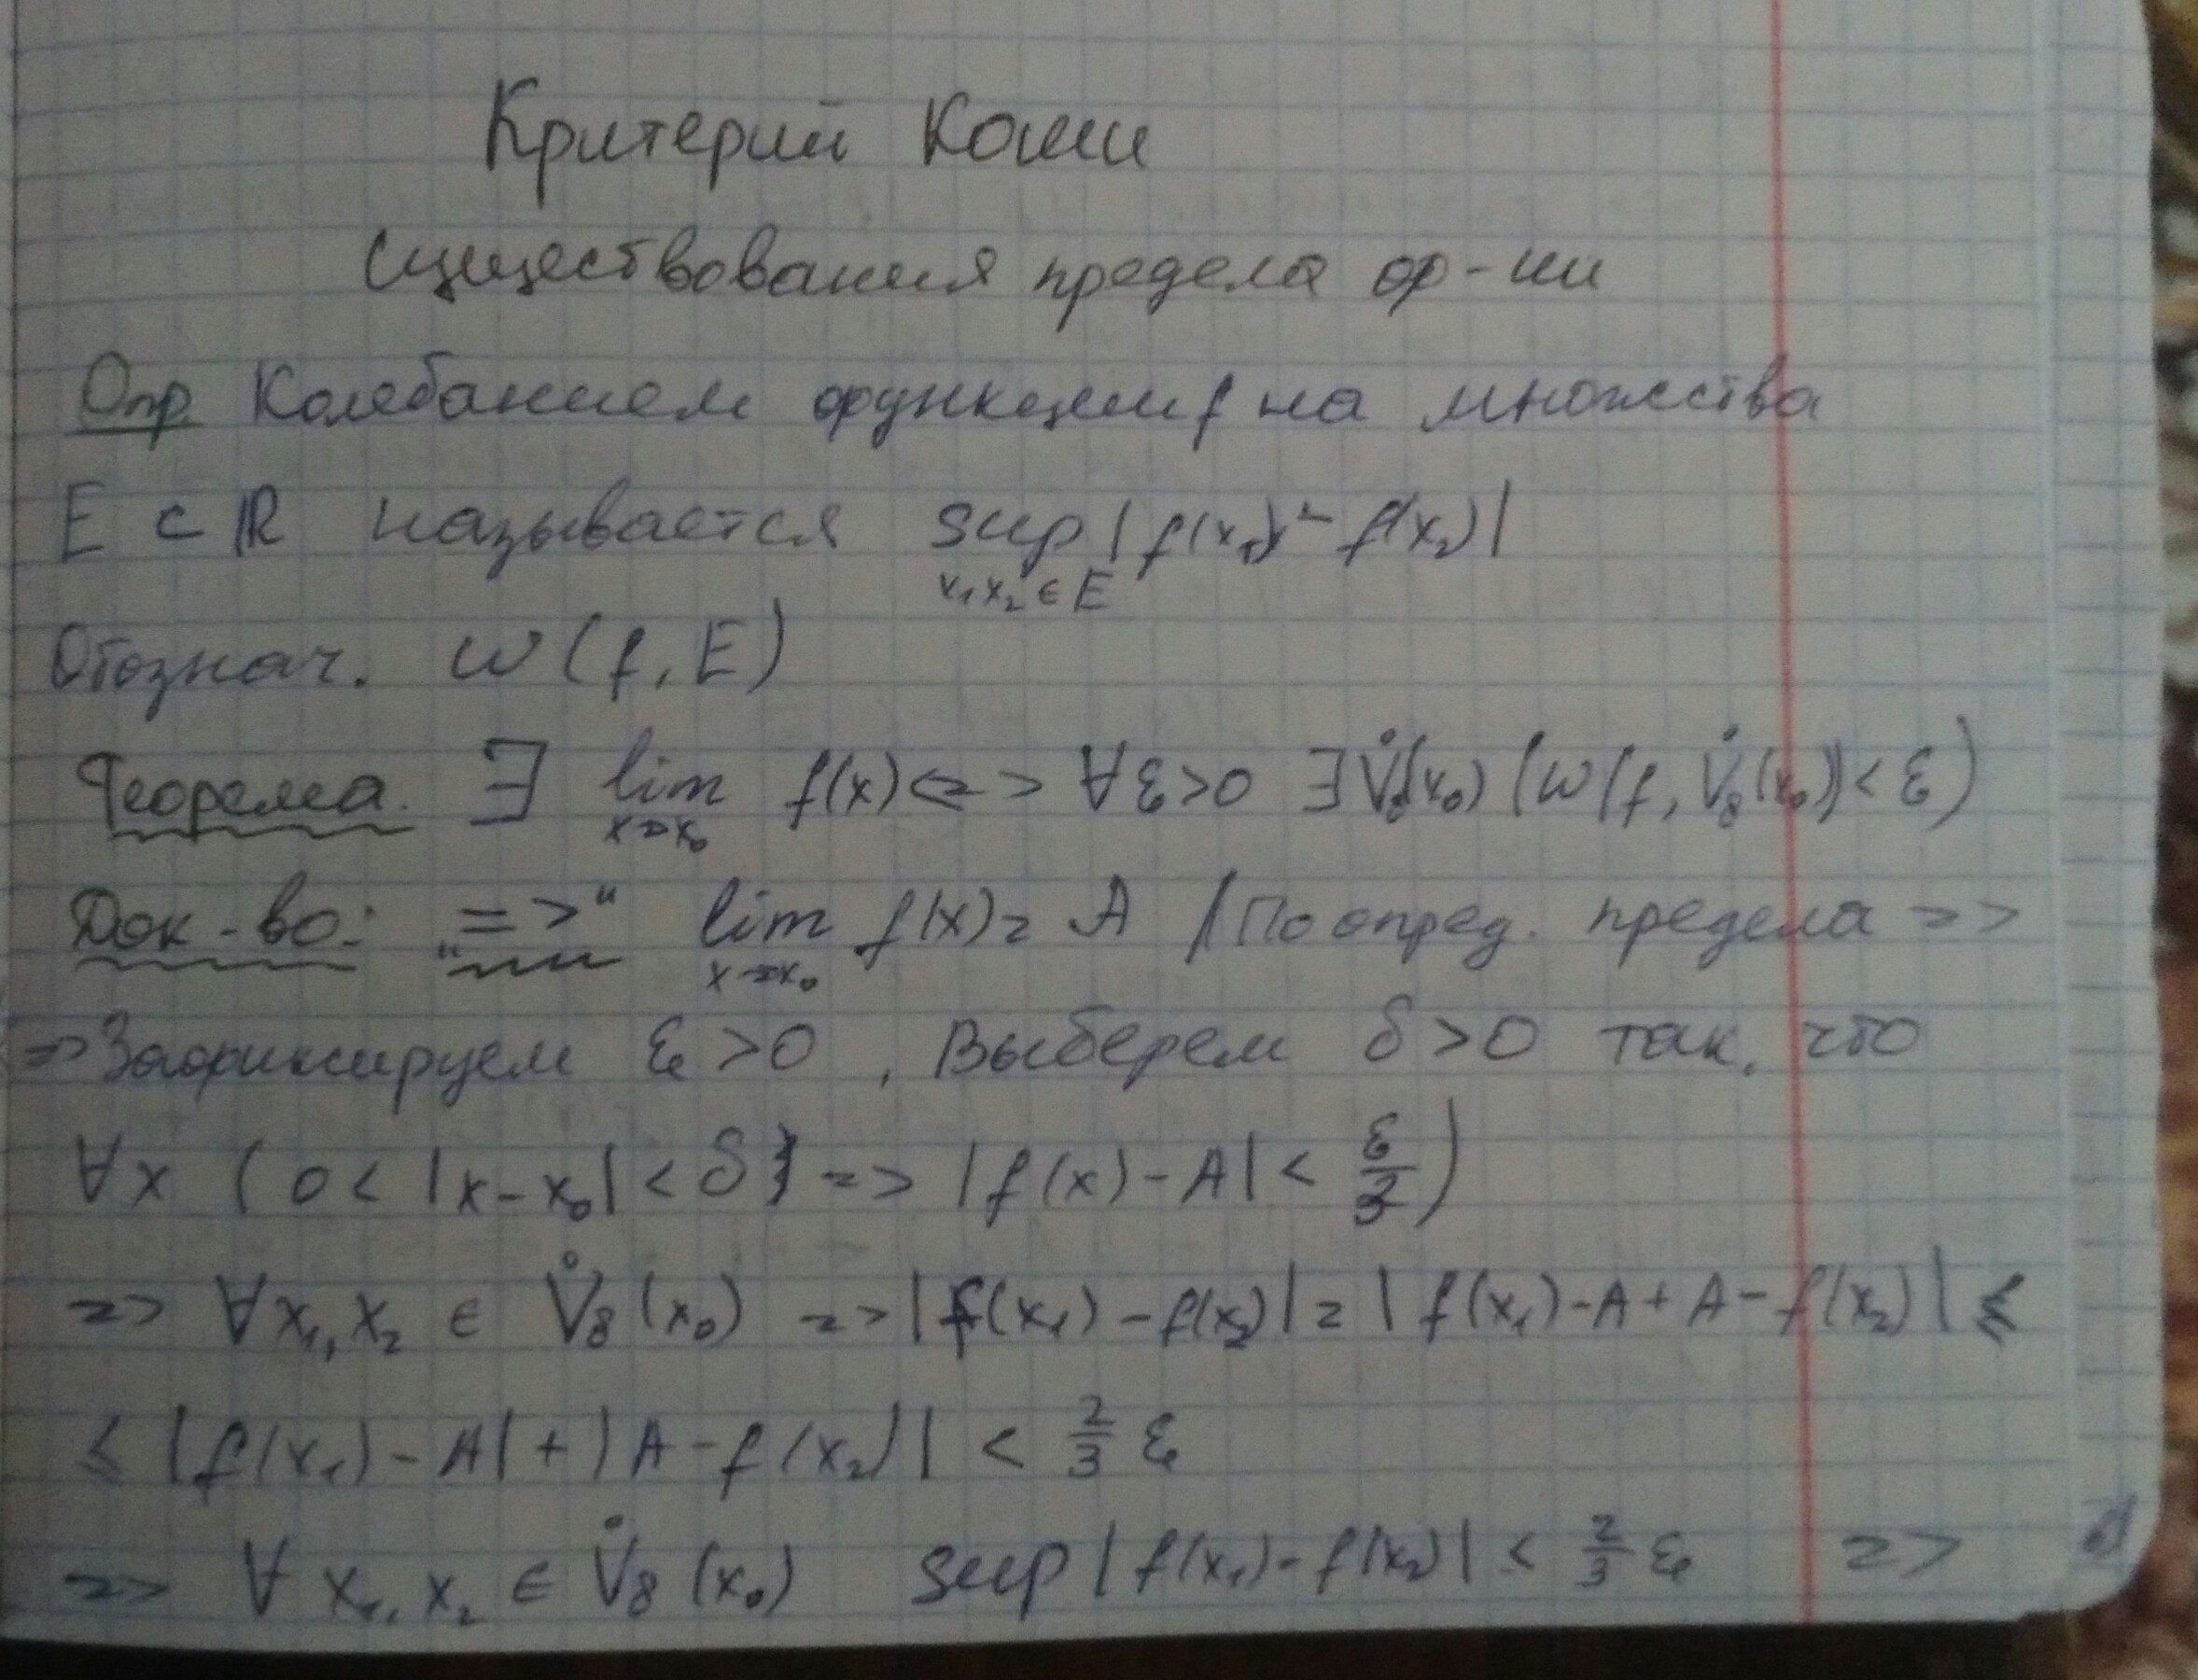 Критерий Коши
Существования предела ф-ии
Опр. Колебанием функции f на множества
E ⊂ ℝ называется sup |f(x₁) - f(x₂)|
x₁x₂ ∈ E
Обознач. ω(f, E)
Теорема. ∃ lim f(x) <=> ∀ε>0 ∃V̇δ(x₀) (ω(f, V̇δ(x₀))<ε)
x→x₀
Док-во: „=>“ lim f(x) = A / По опред. предела =>
x→x₀
=> Зафиксируем ε>0, Выберем δ>0 так, что
∀x (0<|x-x₀|<δ} => |f(x)-A|< ε/3)
=> ∀x₁,x₂ ∈ V̇δ(x₀) => |f(x₁)-f(x₂)| = |f(x₁)-A+A-f(x₂)| ≤
≤ |f(x₁)-A|+|A-f(x₂)| < 2/3 ε
=> ∀ x₁,x₂ ∈ V̇δ(x₀) sup |f(x₁)-f(x₂)| < 2/3 ε =>